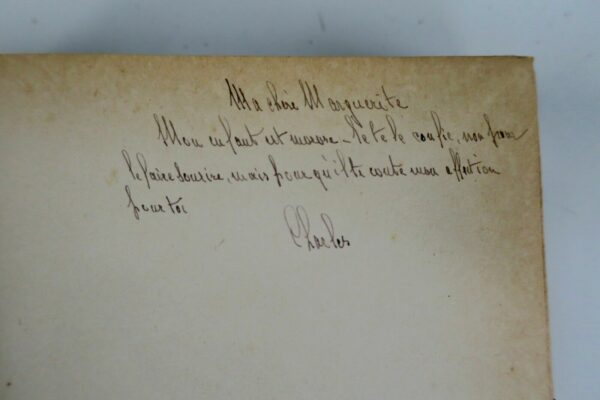 Ma chère Marguerite
Mon enfant est morose – Je te le confie, non pour
le faire sourire, mais pour qu'il te conte mon affection
pour toi
Charles